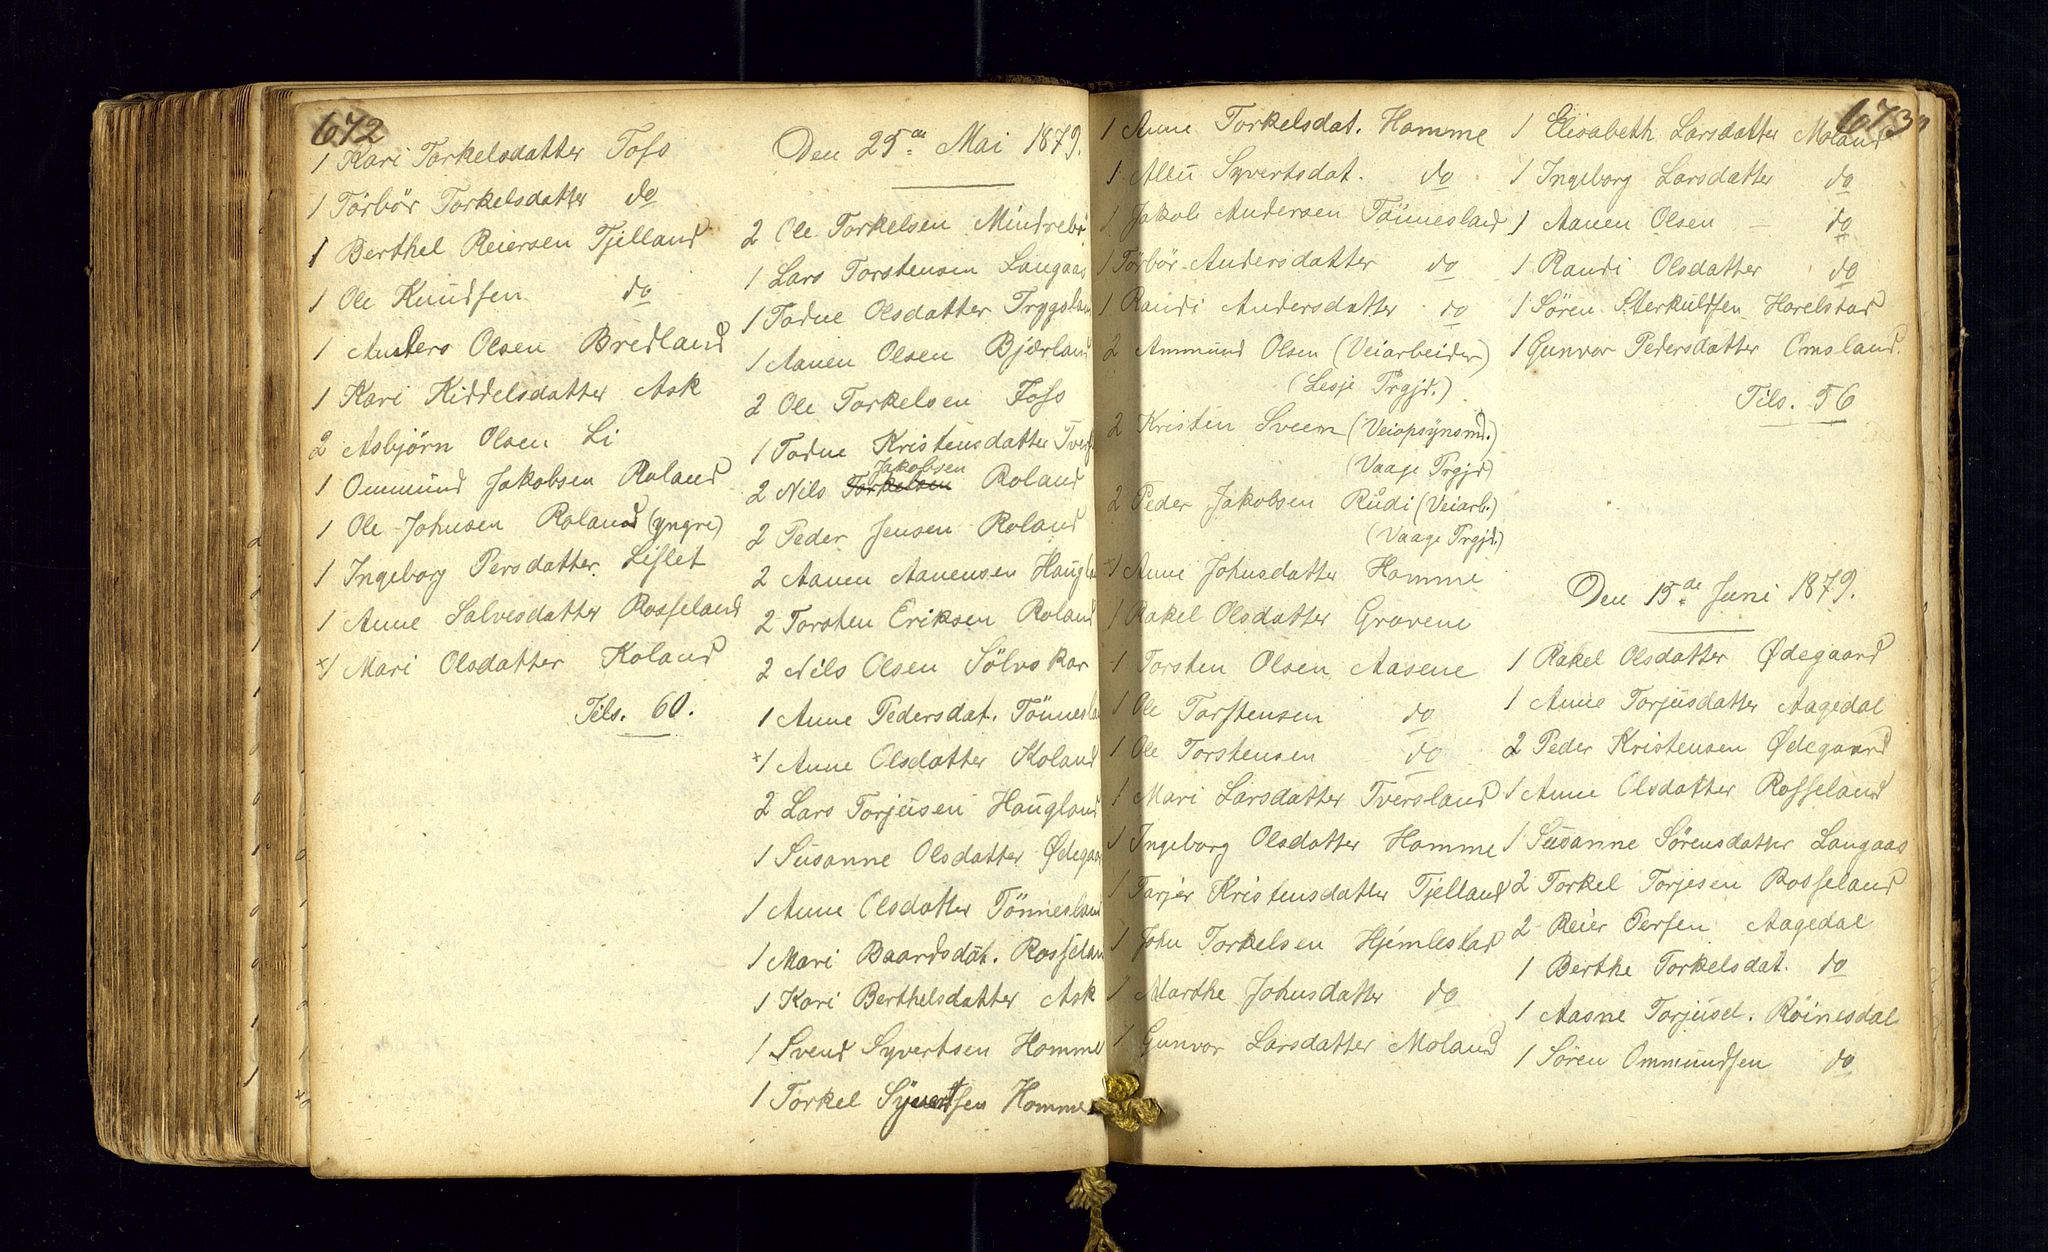 672
1 Kari Torkelsdatter Foss
1 Törbör Torkelsdatter do
1 Berthel Reiersen Tjelland
1 Ole Knudsen do
1 Anders Olsen Bredland
1 Kari Kiddelsdatter Ask
2 Asbjørn Olsen Li
1 Ommund Jakobsen Roland
1 Ole Johnsen Roland (yngre)
1 Ingeborg Persdatter Lislet
1 Anne Salvesdatter Rosseland
x1 Mari Olsdatter Koland
Tils. 60.
Den 25de Mai 1879.
2 Ole Torkelsen Mindrebö
1 Lars Torstensen Langaas
1 Todne Olsdatter Tryggslan
1 Aanen Olsen Bjærland
2 Ole Torkelsen Foss
1 Todne Kristensdatter Tversl
Jakobsen
2 Nils Torkelsen Roland
2 Peder Jensen Roland
2 Aanen Aanensen Haugla
2 Torsten Eriksen Roland
2 Nils Olsen Sölvskar
1 Anne Pedersdat. Tönnesla
x1 Anne Olsdatter Koland
2 Lars Torjusen Haugland
1 Susanne Olsdatter Ødegaa
1 Anne Olsdatter Tönnesland
1 Mari Baardsdat. Rosselan
1 Kari Berthelsdatter Ask
1 Svend Syvertsen Homme
1 Torkel Syvertsen Homme
673
1 Anne Torkelsdat. Homme
1 Allu Syvertsdat. do
1 Jakob Andersen Tönnesland
1 Törbör Andersdatter do
1 Randi Andersdatter do
2 Ammund Olsen (Veiarbeider)
(Lesje Prgjd.)
2 Kristen Sveen (Veiopsynsmd.)
(Vaage Prgjd)
2 Peder Jakobsen Rudi (Veiarb.)
(Vaage Prgjd.)
x1 Anne Johnsdatter Homme
1 Rakel Olsdatter Grovene
1 Torsten Olsen Aasene
1 Ole Torstensen do
1 Ole Torstensen do
1 Mari Larsdatter Tversland
1 Ingeborg Olsdatter Homme
1 Tarjer Kristensdatter Tjelland
1 John Torkelsen Hjemlestad
1 Marthe Johnsdatter do
1 Gunvor Larsdatter Moland
1 Elisabeth Larsdatter Moland
1 Ingeborg Larsdatter do
1 Aanen Olsen – do
1 Randi Olsdatter do
1 Sören Sterkuldsen Horelstad
1 Gunvor Pedersdatter Omsland.
Tils. 56
Den 15de Juni 1879.
1 Rakel Olsdatter Ødegaard
1 Anne Torjusdatter Aagedal
2 Peder Kristensen Ødegaard
1 Anne Olsdatter Rosseland
1 Susanne Sörensdatter Langaas
2 Torkel Torjesen Rosseland
2 Reier Persen Aagedal
1 Berthe Torkelsdat. do
1 Aasne Torjusd. Röinesdal
1 Sören Ommundsen do